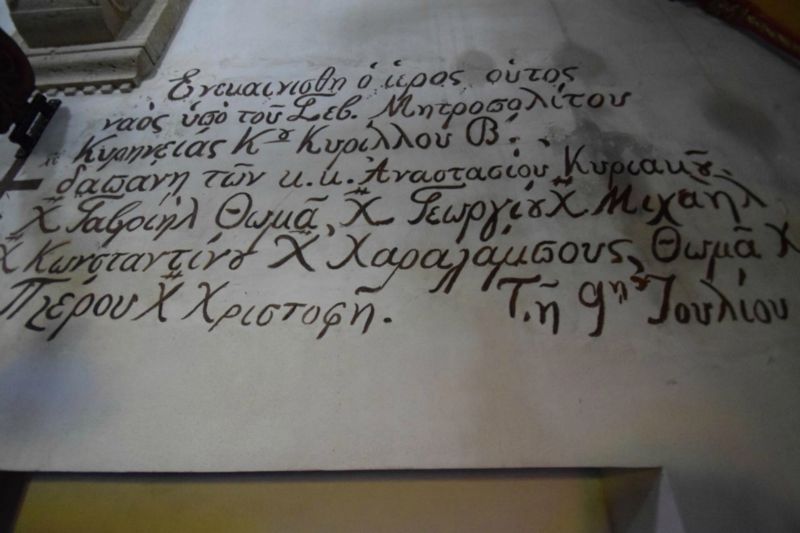 Ενεκαινισθη ὁ ἱερος οὑτος
ναὸς ὑπὸ τοῦ Σεβ. Μητροπολίτου
Κυρηνείας Κου Κυριλλου Β΄.
δαπανῃ τῶν κ.κ. Ἀναστασίου Κυριακοῦ
Χ Γαβριήλ Θωμᾶ, Χ Γεωργίου Χ Μιχαὴλ
Χ Κωνσταντίνου Χ Χαραλάμπους, Θωμᾶ Χ
Πιέρου Χ Χριστοφῆ. Τῇ 9ῃ Ἰουλίου